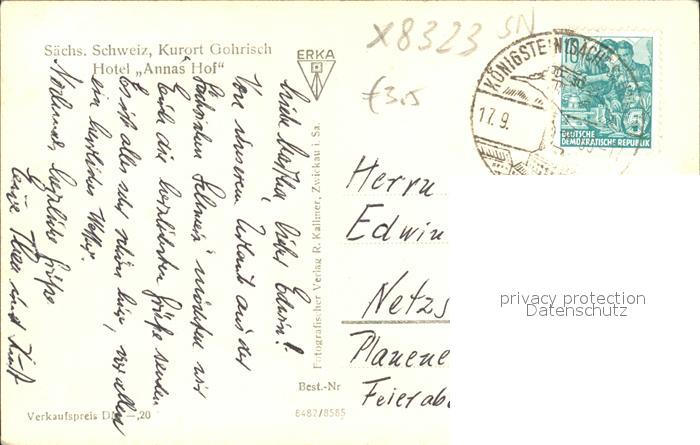 Sächs. Schweiz, Kurort Gohrisch
Hotel „Annas Hof"
x8323 SN
£3.5
ERKA
KÖNIGSTEIN (SÄCHS
17.9.
10
5
DEUTSCHE
DEMOKRATISCHE REPUBLIK
Liebe Käthe, lieber Edwin!
Von unserem Urlaub aus der
Schweiz" möchten wir
Euch die herzlichsten Grüße senden.
Es ist alles sehr schön hier, vor allem
ein herrliches Wetter.
Nochmals herzliche Grüße
und Kurt
Fotografischer Verlag R. Kallmer, Zwickau i. Sa.
Herrn
Edwin
Netzs
Plauene
Feierab
privacy protection
Datenschutz
Best.-Nr
6487/8585
Verkaufspreis D —,20